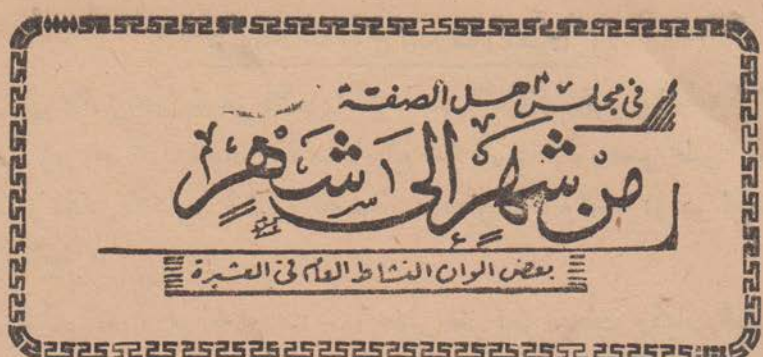 فى مجلس أهل الصفة
من شَهَرٍ إلى شَهرٍ
بعض ألوان النشاط العام فى العشيرة